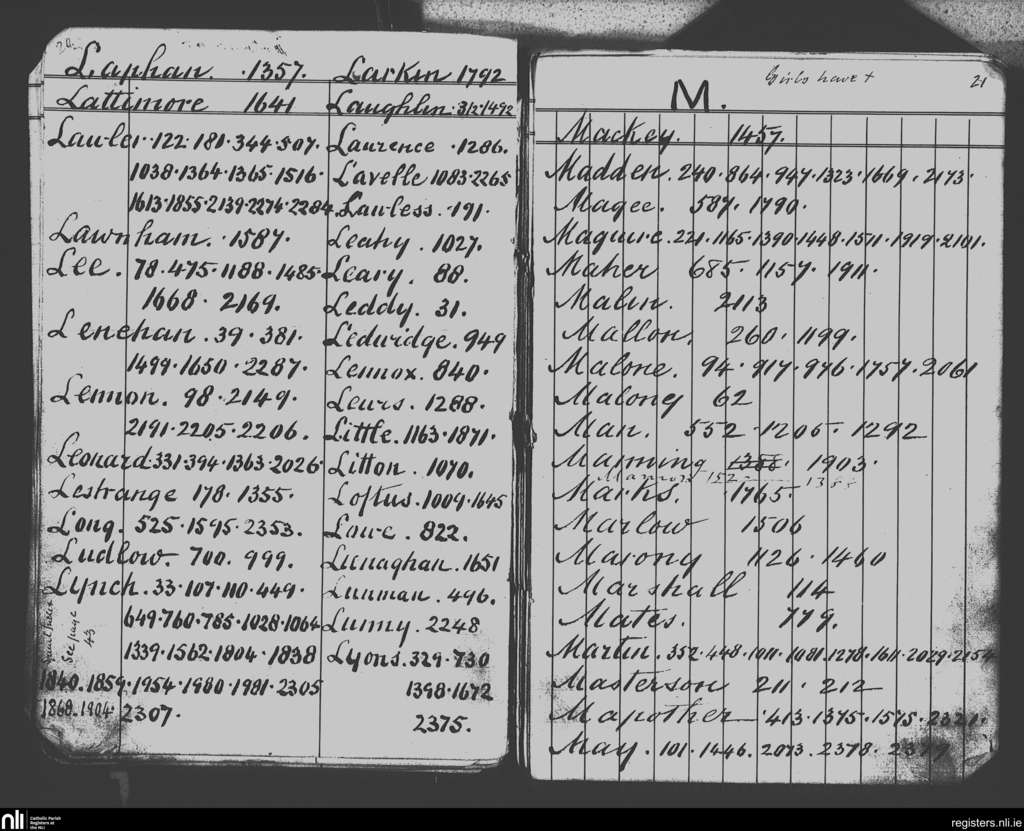 20
Laphan. . 1357.
Lattimore 1641
Lawler . 122 . 181 . 344 . 507.
1038 . 1364 . 1365 . 1516 .
1613 . 1855 . 2139 . 2274 . 2284.
Lawnham. . 1587 .
Lee . 78 . 475 . 1188 . 1485
1668 . 2169.
Lenehan . 39 . 381 .
1499 . 1650 . 2287 .
Lennon. 98 . 2149 .
2191 . 2205 . 2206 .
Leonard . 331 . 394 . 1363 . 2026
Lestrange 178 . 1355 .
Long. 525 . 1595 . 2353 .
Ludlow. 700. 999.
Lynch . 33 . 107 . 110 . 449 .
649 . 760 . 785 . 1028 . 1064
1339 . 1562 . 1804 . 1838
1840 . 1859 . 1954 . 1980 . 1981 . 2305
1868 . 1904 . 2307 .
See page
43
Larkin 1792
Laughlin . 312 . 1492
Laurence . 1286.
Lavelle 1083 . 2265
Lawless . 191 .
Leahy . 1027.
Leary . 88.
Leddy. 31.
Ledwidge . 949
Lennox. 840 .
Lewis . 1288 .
Little. 1163 . 1871 .
Litton . 1070.
Loftus . 1009 . 1645
Lowe . 822.
Lunaghan. 1651
Lunman . 496.
Lunny . 2248
Lyons . 329 . 730
1398 . 1672
2375.
Girls have +
21
M.
Mackey. 1457.
Madden. 240 . 864 . 947 . 1323 . 1669 . 2173 .
Magee. 587 . 1790 .
Maguire . 221 . 1165 . 1390 . 1448 . 1571 . 1919 . 2101 .
Maher 685 . 1157 . 1911 .
Malin. 2113
Mallon. 260 . 1199 .
Malone. 94 . 917 . 976 . 1757 . 2061
Malony 62
Man. 552 . 1205 . 1292
Manning 1903 .
152
Marks. 1765 .
Marlow 1506
Marony 1126 . 1460
Marshall 114
Mates. 779.
Martin . 352 . 448 . 1011 . 1081 . 1278 . 1611 . 2029 . 2154
Masterson 211 . 212
Mapother . 413 . 1375 . 1575 . 2321 .
May . 101 . 1446 . 2073 . 2378 .
nli
Catholic Parish
Registers at
the NLI
registers.nli.ie